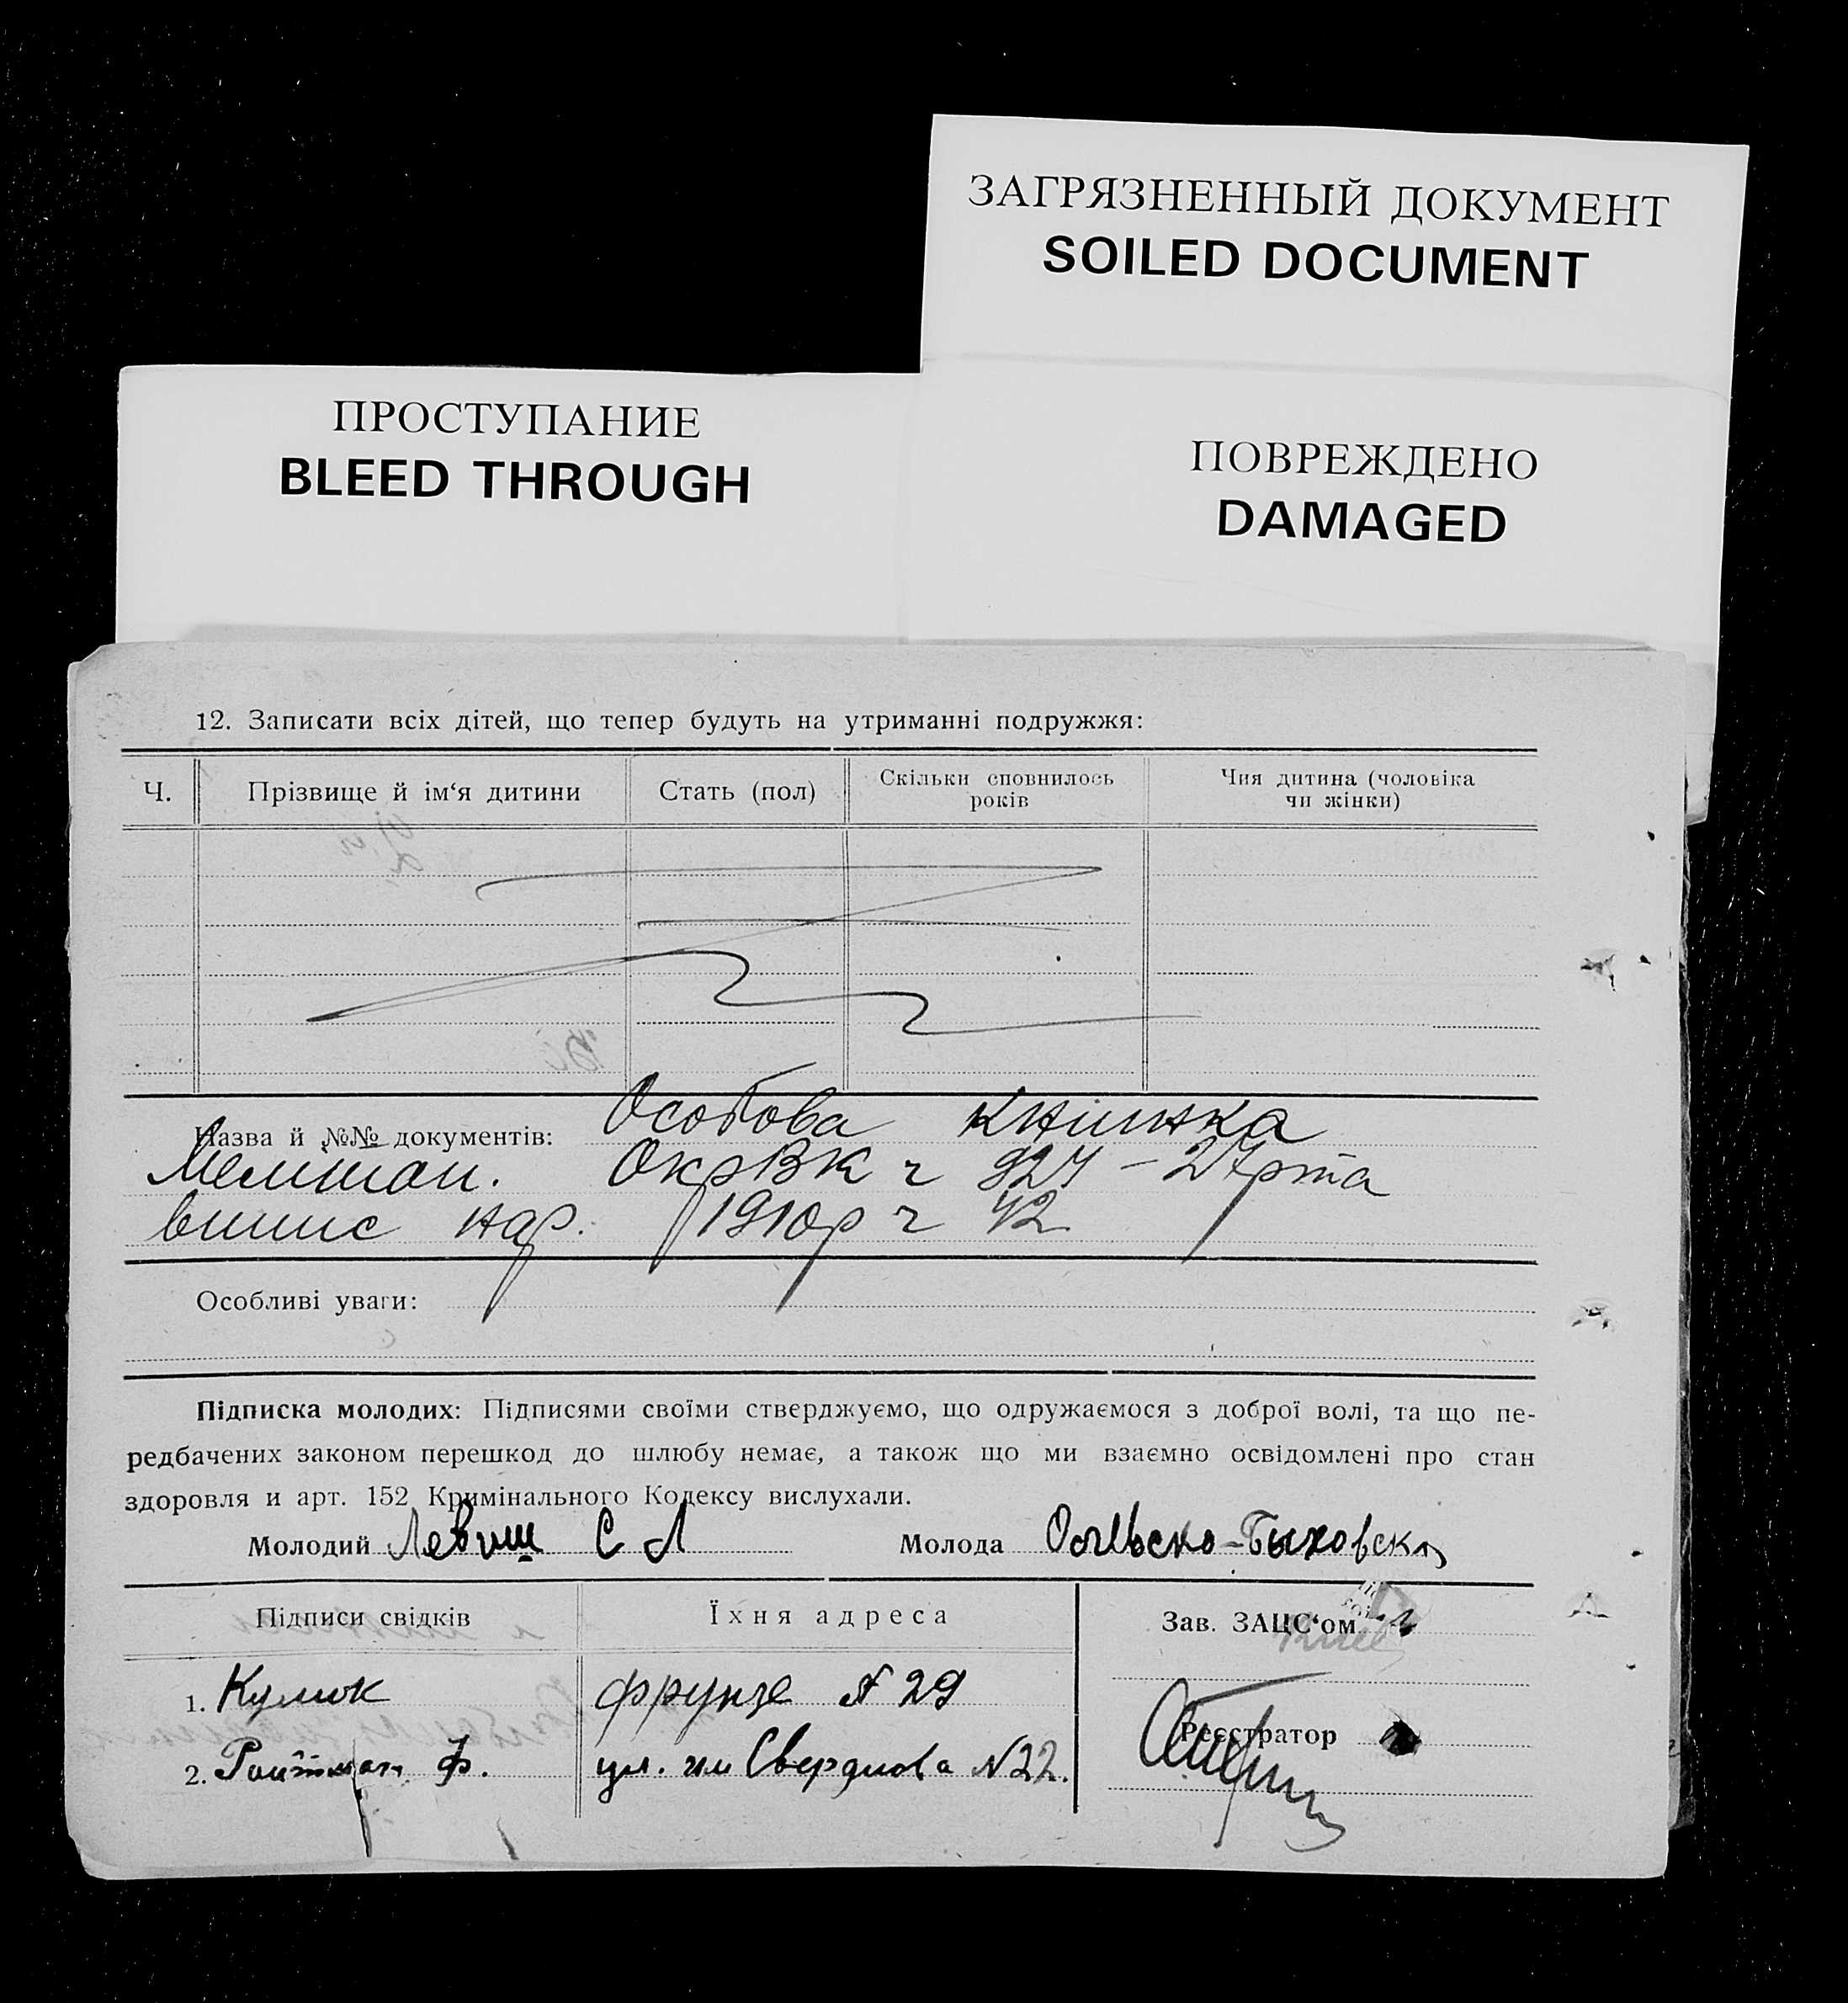 ЗАГРЯЗНЕННЫЙ ДОКУМЕНТ
SOILED DOCUMENT
ПРОСТУПАНИЕ
BLEED THROUGH
ПОВРЕЖДЕНО
DAMAGED
12. Записати всіх дітей, що тепер будуть на утриманні подружжя:
Ч. Прізвище й ім‘я дитини Стать (пол) Скільки сповнилось років Чия дитина (чоловіка чи жінки)
Назва й №№ документів: Особова книжка
ОкрВК ч 927
випис нар. 1910р ч 42
Особливі уваги:
Підписка молодих: Підписями своїми стверджуємо, що одружаємося з доброї волі, та що пе-
редбачених законом перешкод до шлюбу немає, а також що ми взаємно освідомлені про стан
здоровля и арт. 152 Кримінального Кодексу вислухали.
Молодий Левиш С Л Молода -Быховска
Підписи свідків Їхня адреса Зав. ЗАЦС‘ом
1. Кулик Фрунзе № 29
Реєстратор
2. Ройтман Ф. ул. им Свердлова № 22.